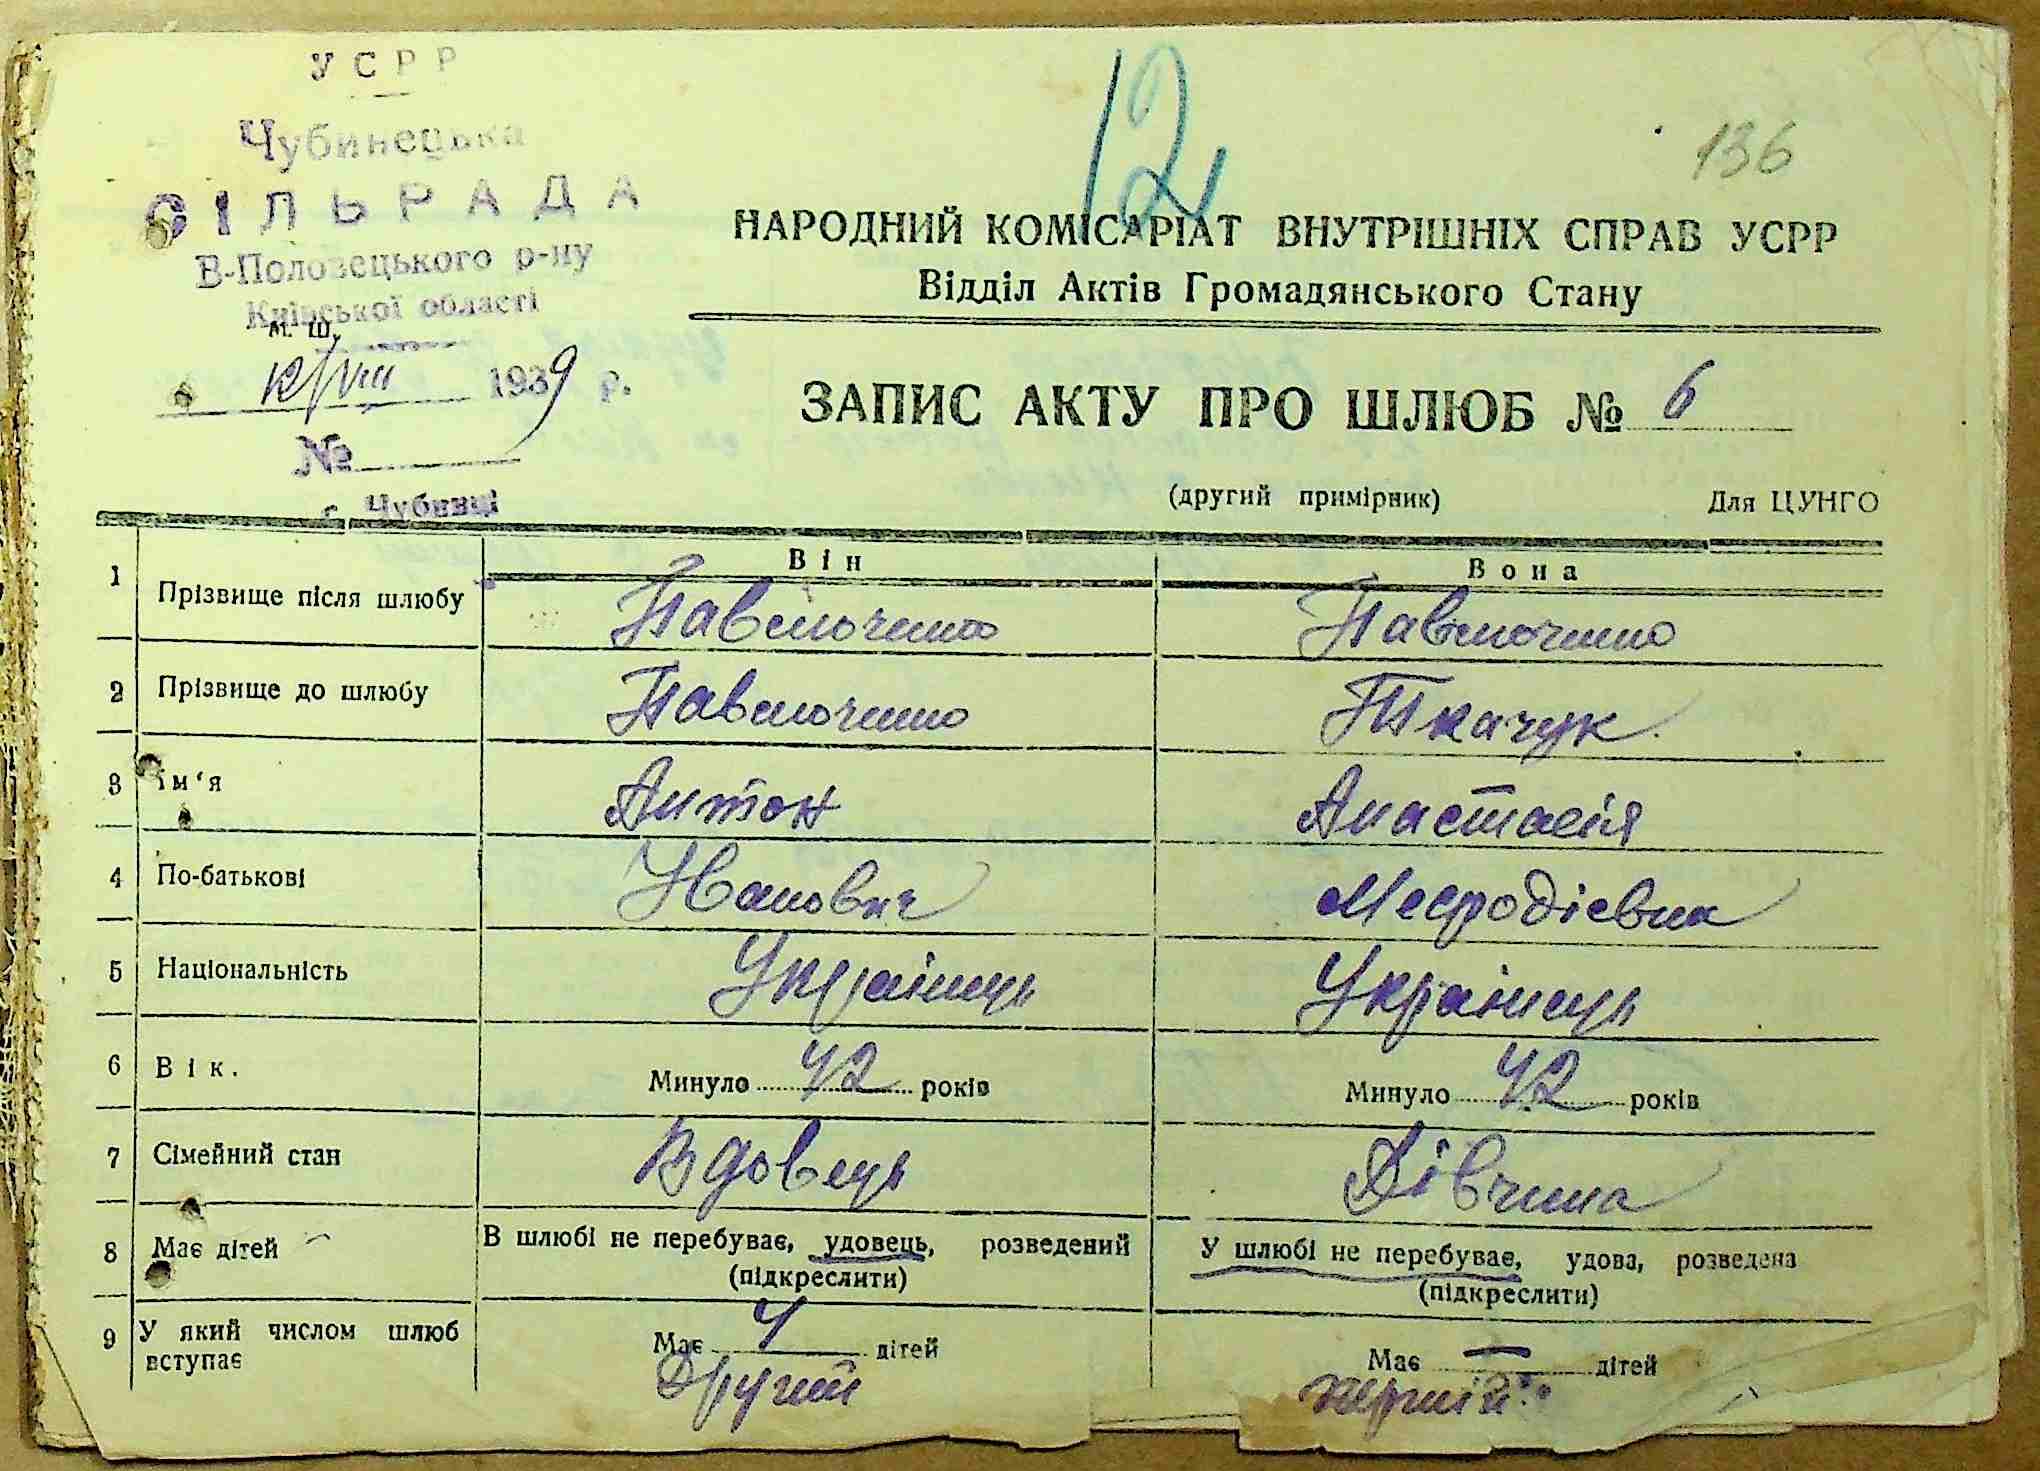 УСРР
Чубинецька
СІЛЬРАДА
В-Половецького р-ну
Київської області
м. ш.
12/VIII 1939 р.
№
с. Чубинці
12
136
НАРОДНИЙ КОМІСАРІАТ ВНУТРІШНІХ СПРАВ УСРР
Відділ Актів Громадянського Стану
ЗАПИС АКТУ ПРО ШЛЮБ № 6
(другий примірник) Для ЦУНГО
Він Вона
1 Прізвище після шлюбу Павлюченко Павлюченко
2 Прізвище до шлюбу Павлюченко Ткачук
3 ім'я Антон Анастасія
4 По-батькові Іванович Мефодієвна
5 Національність Українець Українець
6 Вік. Минуло 42 років Минуло 42 років
7 Сімейний стан Вдовець Дівчина
8 Має дітей В шлюбі не перебуває, удовець, розведений У шлюбі не перебуває, удова, розведена
(підкреслити) (підкреслити)
9 У який числом шлюб вступає Має 4 дітей Має — дітей
Другий перший